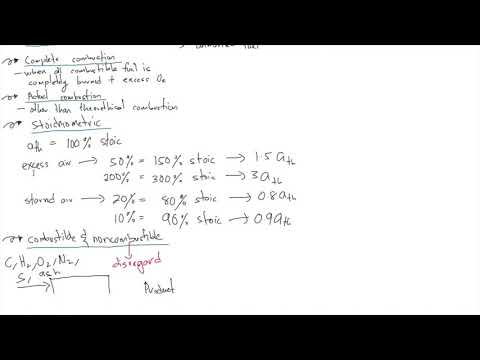 Complete combustion
- when all combustible fuel is
completely burned + excess O₂
Actual combustion
- other than theoretical combustion
Stoichiometric
aₜₕ = 100% stoic
excess air → 50% = 150% stoic → 1.5aₜₕ
200% = 300% stoic → 3aₜₕ
starved air → 20% = 80% stoic → 0.8aₜₕ
10% = 90% stoic → 0.9aₜₕ
combustible & noncombustible
C, H₂, O₂, N₂,
disregard
S, ash
Product